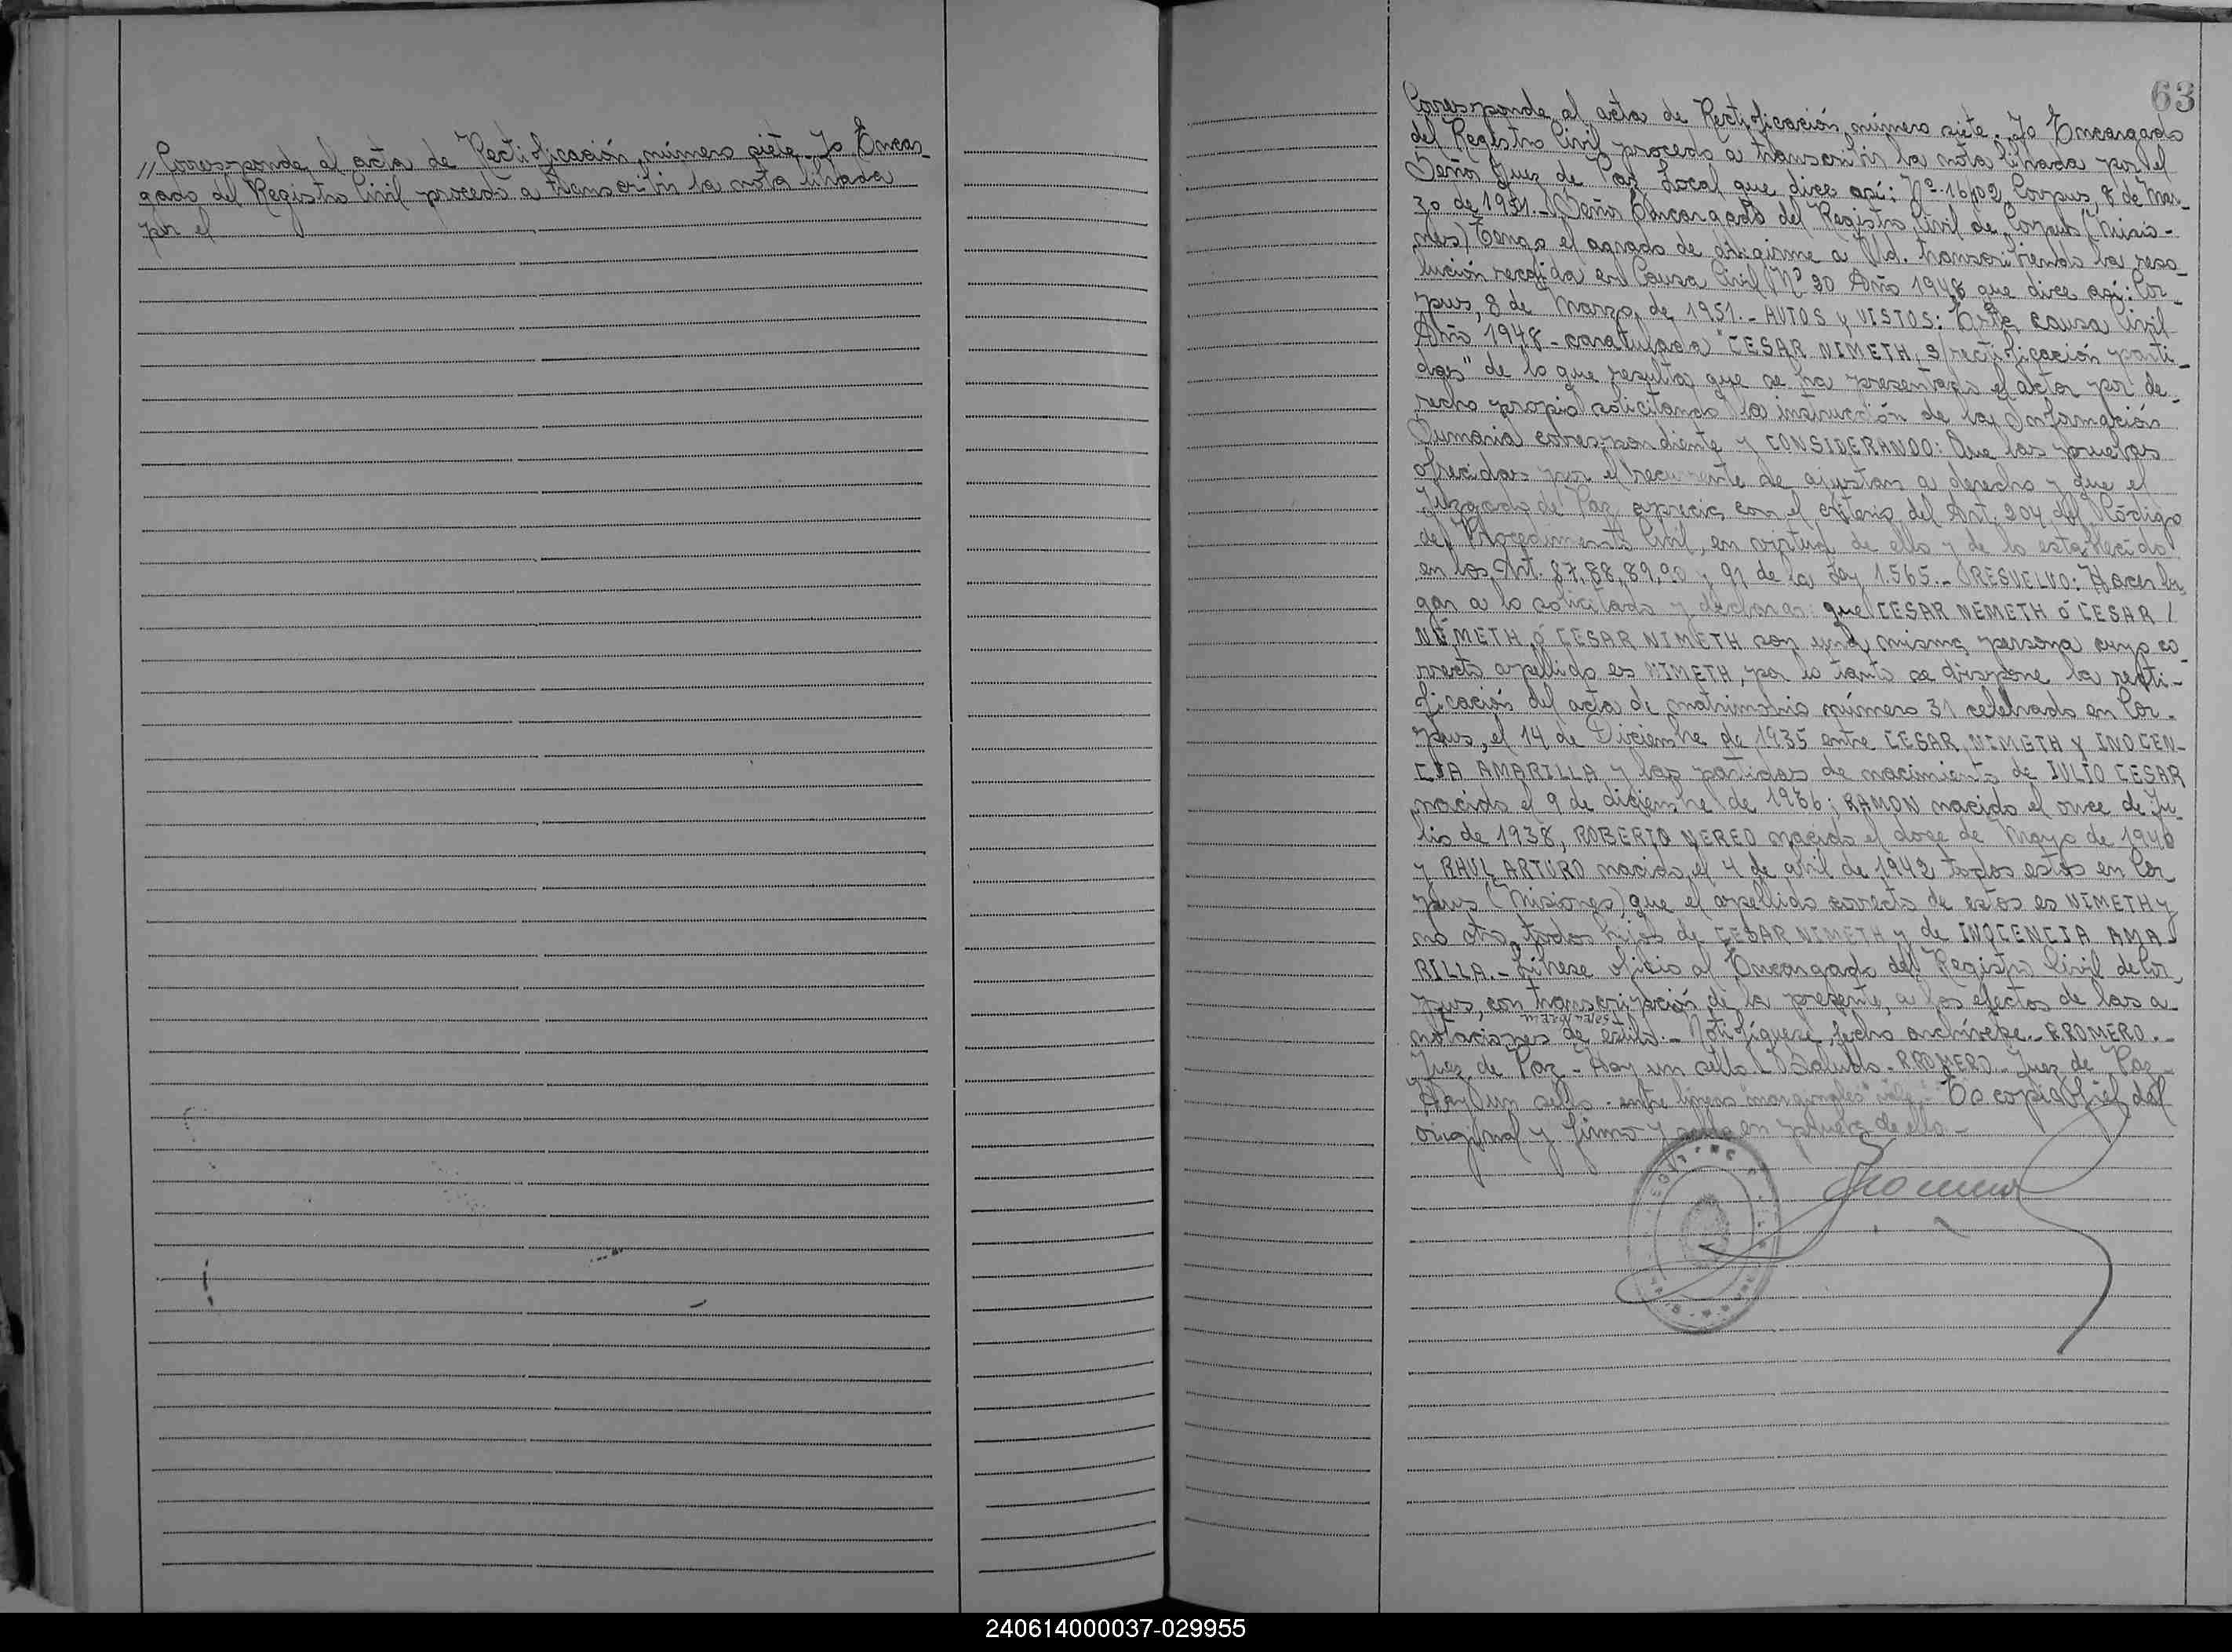 // Corresponde al acta de Rectificación, número siete. Yo Encar-
gado del Registro Civil procedo a transcribir la nota librada
por el
63
Corresponde al acta de Rectificación número siete. Yo Encargado
del Registro Civil procedo a transcribir la nota librada por el
Señor Juez de Paz Local que dice así: Nº 16/02 Corpus, 8 de Mar-
zo de 1951.- Señor Encargado del Registro Civil de Corpus (Misio-
nes) Tengo el agrado de dirigirme a Ud. transcribiendo la reso-
lución recaída en Causa Civil Nº 20 Año 1948 que dice así: Cor-
pus, 8 de Marzo de 1951.- AUTOS y VISTOS: Esta causa Civil
Año 1948 - caratulada "CESAR NIMETH, S/rectificación parti-
das" de lo que resulta que se ha presentado el actor por de-
recho propio solicitando la instrucción de la Información
Sumaria correspondiente y CONSIDERANDO: Que las pruebas
ofrecidas por el recurrente se ajustan a derecho y que el
Juzgado de Paz aprecia con el criterio del Art. 204 del Código
de Procedimiento Civil, en virtud de ello y de lo establecido
en los Art. 87, 88, 89, 90 y 91 de la Ley 1.565.- RESUELVO: Hacer lu-
gar a lo solicitado y declarar que CESAR NEMETH ó CESAR /
NÉMETH ó CESAR NIMETH son una misma persona cuyo co-
rrecto apellido es NIMETH, por lo tanto se dispone la recti-
ficación del acta de matrimonio número 31 celebrado en Cor-
pus, el 14 de Diciembre de 1935 entre CESAR NIMETH y INOCEN-
CIA AMARILLA y las partidas de nacimiento de JULIO CESAR
nacido el 9 de diciembre de 1936; RAMON nacido el once de Ju-
lio de 1938, ROBERTO NEREO nacido el doce de Mayo de 1940
y RAUL ARTURO nacido el 4 de abril de 1942 todos estos en Cor-
pus (Misiones) que el apellido correcto de estos es NIMETH y
no otro, todos hijos de CESAR NIMETH y de INOCENCIA AMA-
RILLA.- Líbrese oficio al Encargado del Registro Civil de Cor-
pus, con transcripción de la presente a los efectos de las a-
marginales
notaciones de estilo.- Notifíquese, fecho archívese.- R.ROMERO.-
Juez de Paz - Hay un sello - Saluda - R.ROMERO - Juez de Paz -
Hay un sello - entre líneas "marginales" vale - Es copia fiel del
original y firmo y sello en prueba de ello -
240614000037-029955